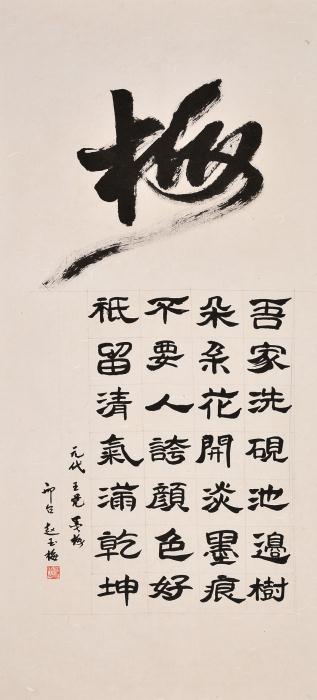 梅
吾家洗硯池邊樹
朵朵花開淡墨痕
不要人誇顏色好
祇留清氣滿乾坤
元代 王冕 墨梅
邢台 赵玉梅